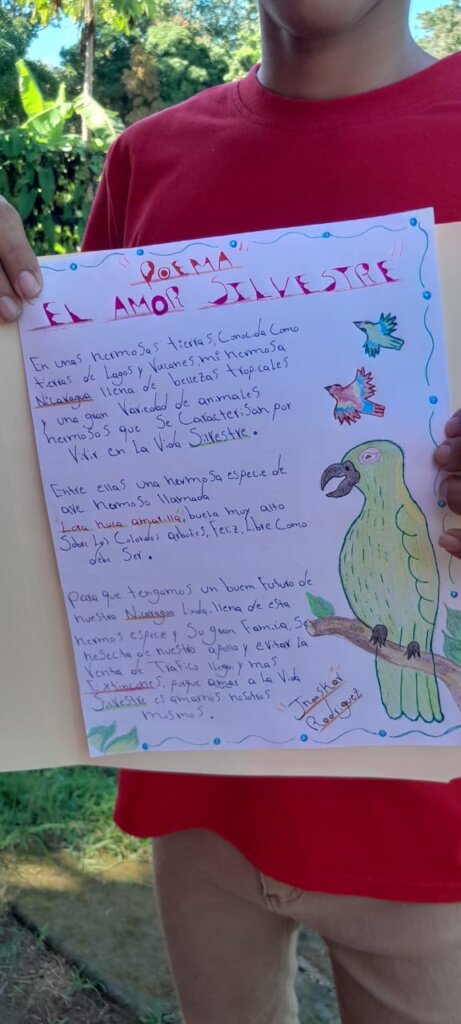 "POEMA"
EL AMOR SILVESTRE"
En unas hermosas tierras, Conocida Como
tierras de Lagos y Volcanes mi hermosa
Nicaragua llena de bellezas tropicales
y una gran Variedad de animales
hermosos que Se Caracterisan por
Vivir en La Vida Silvestre.
Entre ellas una hermosa espece de
ave hermoso llamada
"Lora nuca amarilla", buela muy alto
Sobre Los Colorados arboles, Feliz, Libre Como
debe Ser.
para que tengamos un buem Futuro de
nuestro Nicaragua Linda. llena de esta
hermos espece y Su gran Familia, Se
nesecta de nuestro apollo y evitar la
Venta de Trafico Ilegal y mas
Extinciones. porque amar a la Vida
Silvestre es amarnos nosotros
mismos.
"Jnoskar"
Rodriguez